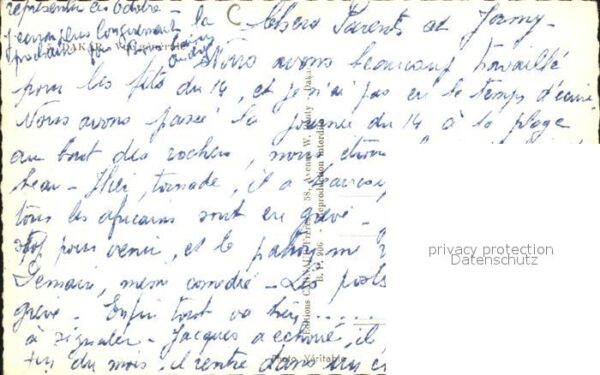 représenter en Octobre - la
J'écrirai plus longuement
prochaine fois. Bons baisers
DAKAR
Chers Parents et Jenny -
Nous avons beaucoup travaillé
pour les fêts du 14, et je n'ai pas eu le temps d'écrire
Nous avons passé la journée du 14 à la plage
au bout des rochers, nous étions
beau - Hier, tornade, il a beaucoup
tous les africains sont en grève -
pour venir, et le me
Demain, même comédie - Les
grève - Enfin tout va bien .....
à signaler - Jacques a échoué, il
fin du mois, il rentre dans un
Editions 58, Avenue W. Dakar
B. P. 906 - Reproduction interdite
Photo Véritable
privacy protection
Datenschutz